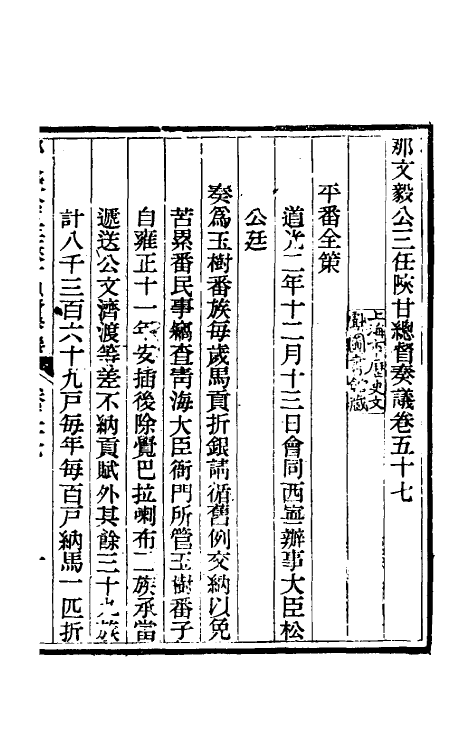 那文毅公三任陝甘總督奏議卷五十七
上海市歷史文
獻圖書館藏
平番全策
道光二年十二月十三日會同西寧辦事大臣松
公廷
奏爲玉樹番族每歲馬貢折銀請循舊例交納以免
苦累番民事竊查靑海大臣衙門所管玉樹番子
自雍正十一年安插後除覺巴拉喇布二族承當
遞送公文濟渡等差不納貢賦外其餘三十九族
計八千三百六十九戸每年每百戸納馬一匹折